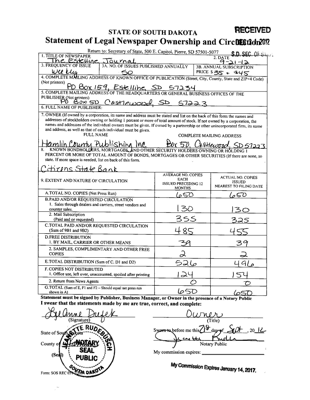 STATE OF SOUTH DAKOTA
RECEIVED
Statement of Legal Newspaper Ownership and
Return to: Secretary of State, 500 E. Capitol, Pierre, SD 57501-5077
S.D. SEC. OF
1. TITLE OF NEWSPAPER
The Estelline Journal
2. DATE
9-21-12
3. FREQUENCY OF ISSUE
weekly
3A. NO. OF ISSUES PUBLISHED ANNUALLY
50
3B. ANNUAL SUBSCRIPTION
PRICE
4. COMPLETE MAILING ADDRESS OF KNOWN OFFICE OF PUBLICATION (Street, City, County, State and ZIP+4 Code)
(Not printers)
PO Box 159, Estelline SD 57234
5. COMPLETE MAILING ADDRESS OF THE HEADQUARTERS OR GENERAL BUSINESS OFFICES OF THE
PUBLISHER (Not printer)
PO Box 50 Castlewood, SD 57223
6. FULL NAME OF PUBLISHER:
7. OWNER (If owned by a corporation, its name and address must be stated and list on the back of this form the names and
addresses of stockholders owning or holding 1 percent or more of total amount of stock. If not owned by a corporation, the
names and addresses of the individual owners must be given. If owned by a partnership or other unincorporated firm, its name
and address, as well as that of each individual must be given.
FULL NAME
COMPLETE MAILING ADDRESS
Hamlin County Publishing Inc
Box 50, Castlewood, SD 57223
8. KNOWN BONDHOLDERS, MORTGAGES, AND OTHER SECURITY HOLDERS OWNING OR HOLDING 1
PERCENT OR MORE OF TOTAL AMOUNT OF BONDS, MORTGAGES OR OTHER SECURITIES (If there are none, so
state. If more space is needed, list on back of this form.
Citizens State Bank
9. EXTENT AND NATURE OF CIRCULATION
AVERAGE NO. COPIES
EACH
ISSUED PRECEDING 12
MONTHS
ACTUAL NO. COPIES
ISSUED
NEAREST TO FILING DATE
A. TOTAL NO. COPIES (Net Press Run)
650
650
B. PAID AND/OR REQUESTED CIRCULATION
1. Sales through dealers and carriers, street vendors and
counter sales.
130
130
2. Mail Subscription
(Paid and or requested)
355
325
C. TOTAL PAID AND/OR REQUESTED CIRCULATION
(Sum of 9B1 and 9B2)
485
455
D. FREE DISTRIBUTION
1. BY MAIL, CARRIER OR OTHER MEANS
39
39
2. SAMPLES, COMPLIMENTARY AND OTHER FREE
COPIES
2
2
E. TOTAL DISTRIBUTION (Sum of C, D1 and D2)
526
496
F. COPIES NOT DISTRIBUTED
1. Office use, left over, unaccounted, spoiled after printing
124
154
2. Return from News Agents
0
0
G. TOTAL (Sum of E, F1 and F2 – Should equal net press run
shown in A)
650
650
Statement must be signed by Publisher, Business Manager, or Owner in the presence of a Notary Public
I swear that the statements made by me are true, correct, and complete:
(Signature)
Owner
(Title)
State of South
Sworn to before me this 21st day of Sept 20
County of
Notary Public
(Seal)
My commission expires:
NOTARY
SEAL
PUBLIC
SOUTH DAKOTA
My Commission Expires January 14, 2017.
Form: SOS REC